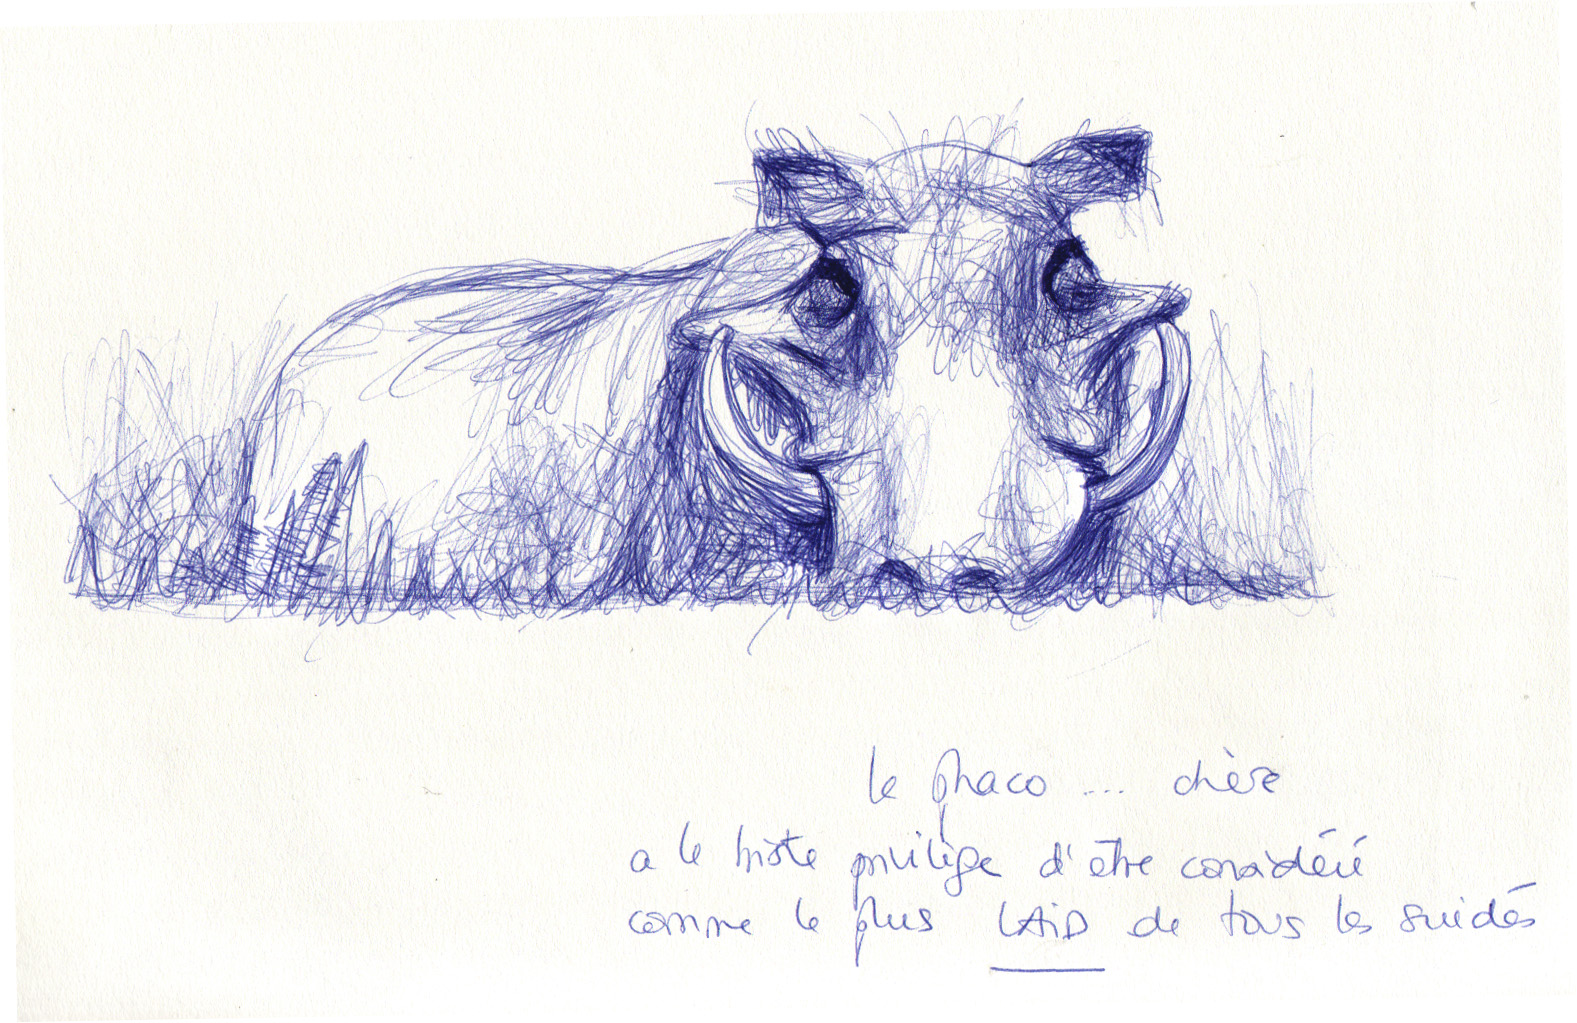 le phaco .... chère
a le triste privilège d'être considéré
comme le plus LAiD de tous les suidés